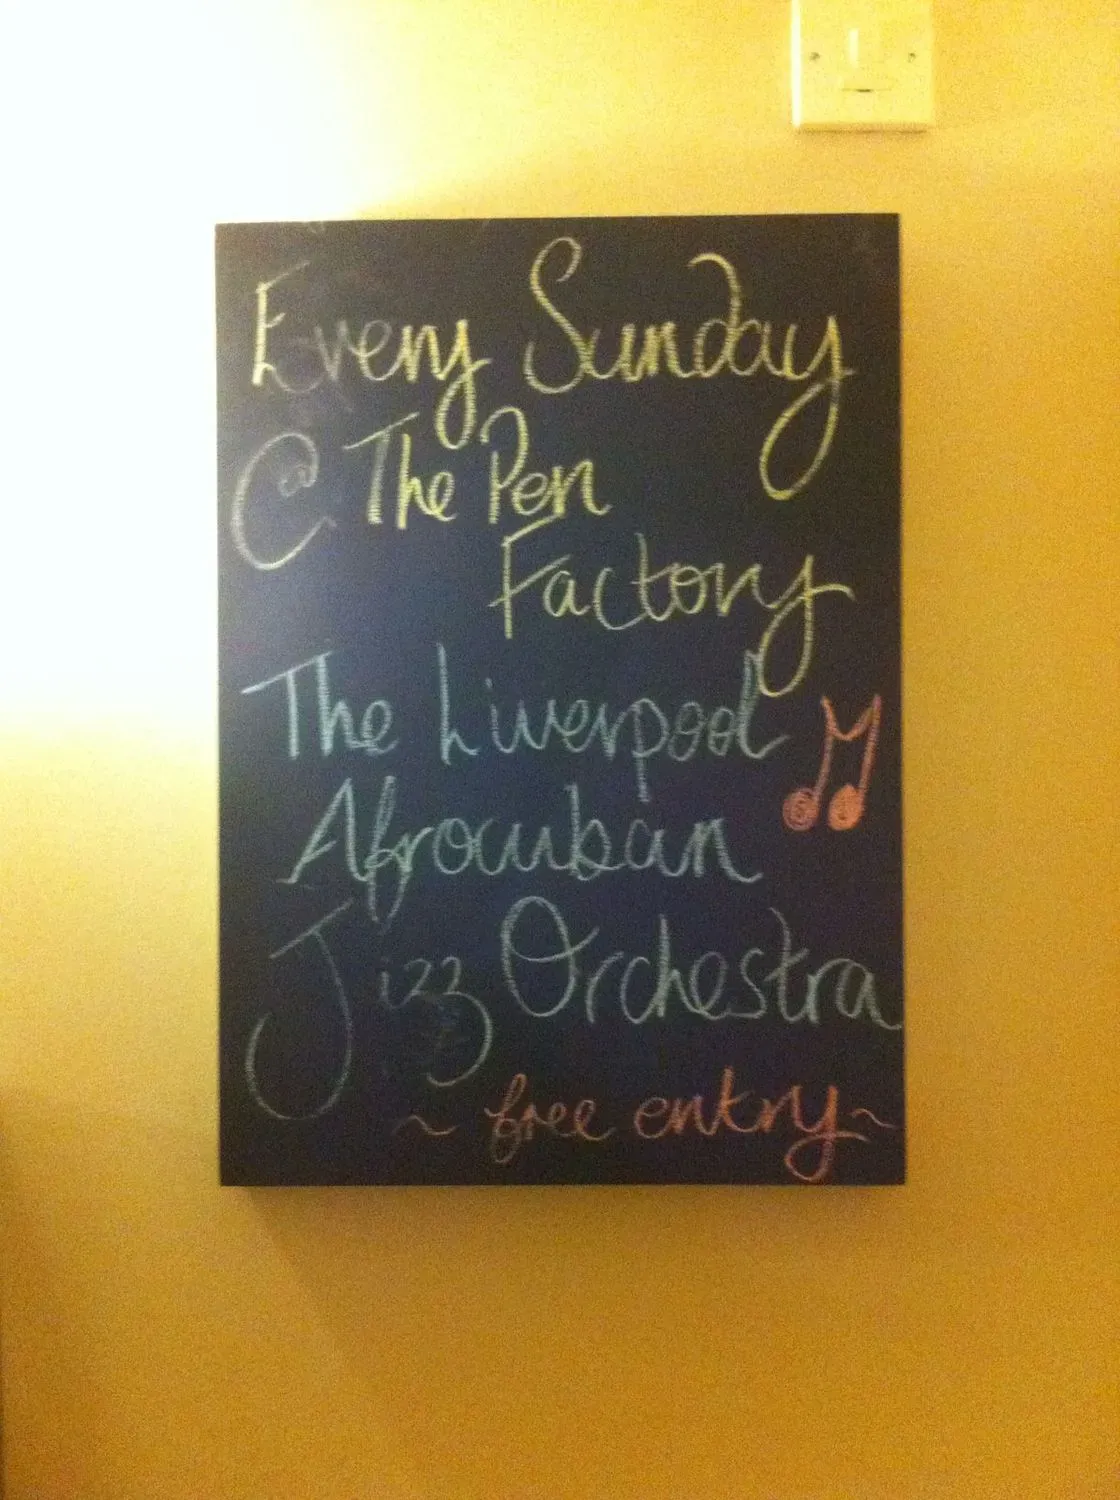 Every Sunday
@ The Pen
Factory
The Liverpool
Afrocuban
Jizz Orchestra
~ free entry ~